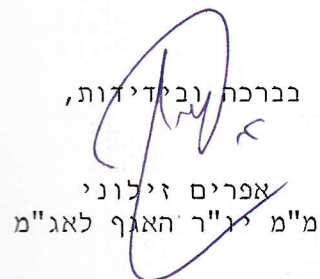 בברכה ובידידות,
אפרים זילוני
מ"מ יו"ר האגף לאג"מ